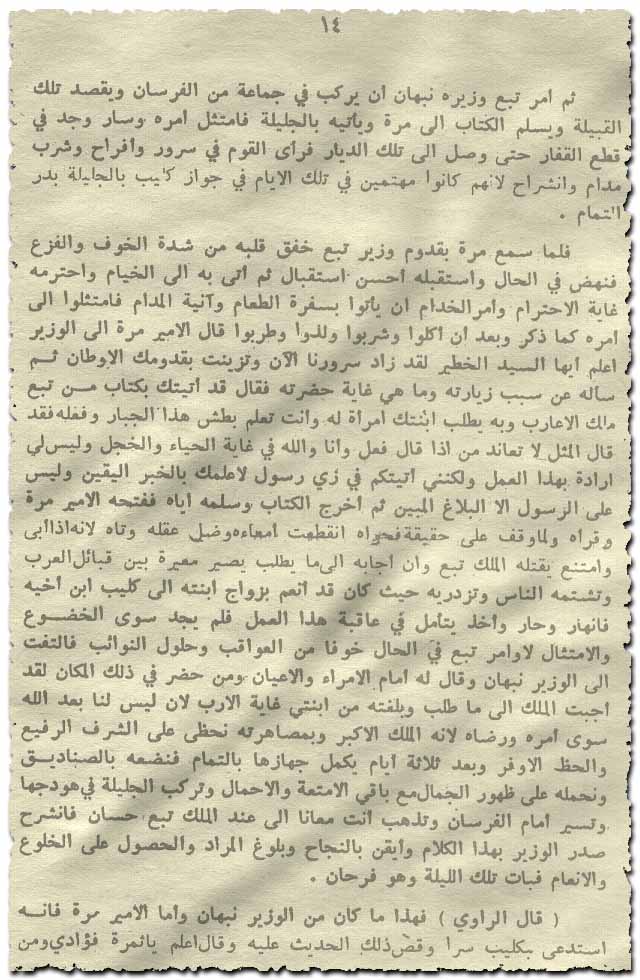 ١٤
ثم امر تبع وزيره نبهان ان يركب في جماعة من الفرسان ويقصد تلك
القبيلة ويسلم الكتاب الى مرة ويأتيه بالجليلة فامتثل امره وسار وجد في
قطع القفار حتى وصل الى تلك الديار فرأى القوم في سرور وافراح وشرب
مدام وانشراح لانهم كانوا مهتمين في تلك الايام في جواز كليب بالجليلة بدر
التمام .
فلما سمع مرة بقدوم وزير تبع خفق قلبه من شدة الخوف والفزع
فنهض في الحال واستقبله أحسن استقبال ثم أتى به الى الخيام واحترمه
غاية الاحترام وامر الخدام ان يأتوا بسفرة الطعام وآنية المدام فامتثلوا الى
امره كما ذكر وبعد ان اكلوا وشربوا ولذوا وطربوا قال الامير مرة الى الوزير
اعلم أيها السيد الخطير لقد زاد سرورنا الآن وتزينت بقدومك الاوطان ثم
سأله عن سبب زيارته وما هي غاية حضرته فقال قد أتيتك بكتاب من تبع
مالك الاعارب وبه يطلب ابنتك امرأة له وأنت تعلم بطش هذا الجبار وفعله فقد
قال المثل لا تعاند من اذا قال فعل وأنا والله في غاية الحياء والخجل وليس لي
ارادة بهذا العمل ولكنني أتيتكم في زي رسول لاعلمك بالخبر اليقين وليس
على الرسول الا البلاغ المبين ثم أخرج الكتاب وسلمه أياه ففتحه الامير مرة
وقرأه ولما وقف على حقيقة فحواه انقطعت أمعاءه وضل عقله وتاه لانه اذا أبى
وامتنع يقتله الملك تبع وان أجابه الى ما يطلب يصير معيرة بين قبائل العرب
وتشتمه الناس وتزدريه حيث كان قد أنعم بزواج ابنته الى كليب ابن أخيه
فانهار وحار وأخذ يتأمل في عاقبة هذا العمل فلم يجد سوى الخضوع
والامتثال لاوامر تبع في الحال خوفا من العواقب وحلول النوائب فالتفت
الى الوزير نبهان وقال له أمام الامراء والاعيان ومن حضر في ذلك المكان لقد
أجبت الملك الى ما طلب وبلغته من ابنتي غاية الارب لان ليس لنا بعد الله
سوى أمره ورضاه لانه الملك الاكبر وبمصاهرته نحظى على الشرف الرفيع
والحظ الاوفر وبعد ثلاثة أيام يكمل جهازها بالتمام فنضعه بالصناديق
ونحمله على ظهور الجمال مع باقي الامتعة والاحمال وتركب الجليلة في هودجها
وتسير أمام الفرسان وتذهب أنت معانا الى عند الملك تبع حسان فانشرح
صدر الوزير بهذا الكلام وأيقن بالنجاح وبلوغ المراد والحصول على الخلوع
والانعام فبات تلك الليلة وهو فرحان .
( قال الراوي ) فهذا ما كان من الوزير نبهان وأما الامير مرة فانه
استدعى بكليب سرا وقص ذلك الحديث عليه وقال اعلم ياثمرة فؤادي ومن